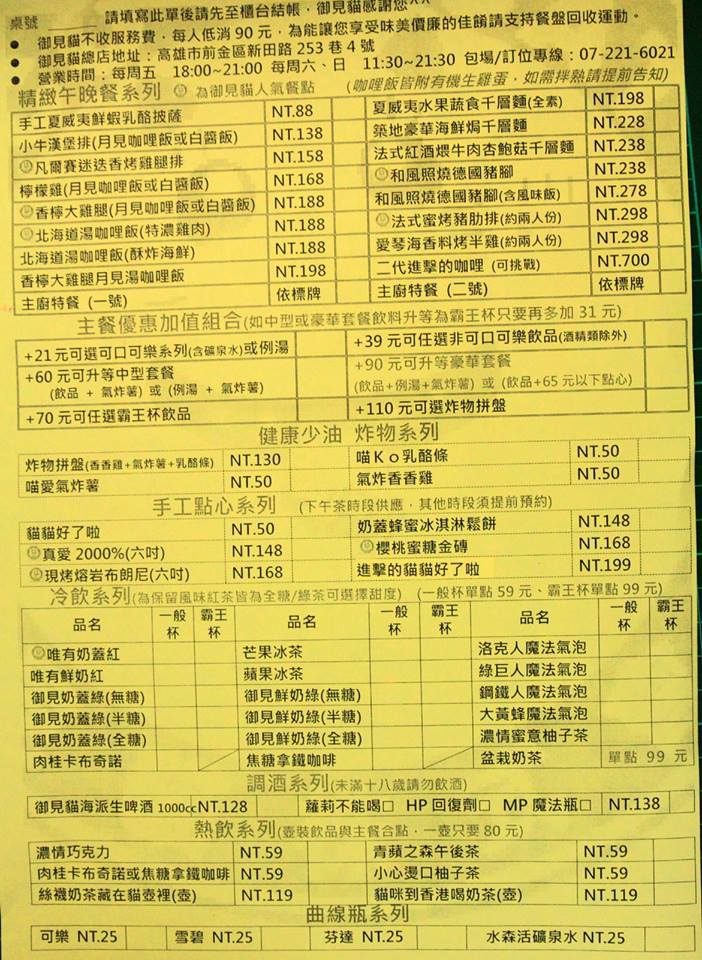 桌號 請填寫此單後請先至櫃台結帳，御見貓感謝您^^
● 御見貓不收服務費，每人低消 90 元，為能讓您享受味美價廉的佳餚請支持餐盤回收運動。
● 御見貓總店地址：高雄市前金區新田路 253 巷 4 號
● 營業時間：每周五 18:00~21:00 每周六、日 11:30~21:30 包場/訂位專線：07-221-6021
精緻午晚餐系列 為御見貓人氣餐點 (咖哩飯皆附有機生雞蛋，如需拌熟請提前告知)
手工夏威夷鮮蝦乳酪披薩 NT.88 夏威夷水果蔬食千層麵(全素) NT.198
小牛漢堡排(月見咖哩飯或白醬飯) NT.138 築地豪華海鮮焗千層麵 NT.228
凡爾賽迷迭香烤雞腿排 NT.158 法式紅酒煨牛肉杏鮑菇千層麵 NT.238
檸檬雞(月見咖哩飯或白醬飯) NT.168 和風照燒德國豬腳 NT.238
香檸大雞腿(月見咖哩飯或白醬飯) NT.188 和風照燒德國豬腳(含風味飯) NT.278
北海道湯咖哩飯(特濃雞肉) NT.188 法式蜜烤豬肋排(約兩人份) NT.298
北海道湯咖哩飯(酥炸海鮮) NT.188 愛琴海香料烤半雞(約兩人份) NT.298
香檸大雞腿月見湯咖哩飯 NT.198 二代進擊的咖哩 (可挑戰) NT.700
主廚特餐 (一號) 依標牌 主廚特餐 (二號) 依標牌
主餐優惠加值組合(如中型或豪華套餐飲料升等為霸王杯只要再多加 31 元)
+21 元可選可口可樂系列(含礦泉水)或例湯 +39 元可任選非可口可樂飲品(酒精類除外)
+60 元可升等中型套餐 +90 元可升等豪華套餐
(飲品 + 氣炸薯) 或 (例湯 + 氣炸薯) (飲品+例湯+氣炸薯) 或 (飲品+65 元以下點心)
+70 元可任選霸王杯飲品 +110 元可選炸物拼盤
健康少油 炸物系列
炸物拼盤(香香雞+氣炸薯+乳酪條) NT.130 喵Ｋo乳酪條 NT.50
喵愛氣炸薯 NT.50 氣炸香香雞 NT.50
手工點心系列 (下午茶時段供應，其他時段須提前預約)
貓貓好了啦 NT.50 奶蓋蜂蜜冰淇淋鬆餅 NT.148
真愛 2000%(六吋) NT.148 櫻桃蜜糖金磚 NT.168
現烤熔岩布朗尼(六吋) NT.168 進擊的貓貓好了啦 NT.199
冷飲系列(為保留風味紅茶皆為全糖/綠茶可選擇甜度) (一般杯單點 59 元、霸王杯單點 99 元)
品名 一般杯 霸王杯 品名 一般杯 霸王杯 品名 一般杯 霸王杯
唯有奶蓋紅 芒果冰茶 洛克人魔法氣泡
唯有鮮奶紅 蘋果冰茶 綠巨人魔法氣泡
御見奶蓋綠(無糖) 御見鮮奶綠(無糖) 鋼鐵人魔法氣泡
御見奶蓋綠(半糖) 御見鮮奶綠(半糖) 大黃蜂魔法氣泡
御見奶蓋綠(全糖) 御見鮮奶綠(全糖) 濃情蜜意柚子茶
肉桂卡布奇諾 焦糖拿鐵咖啡 盆栽奶茶 單點 99 元
調酒系列(未滿十八歲請勿飲酒)
御見貓海派生啤酒 1000cc NT.128 蘿莉不能喝□ HP 回復劑□ MP 魔法瓶□ NT.138
熱飲系列(壺裝飲品與主餐合點，一壺只要 80 元)
濃情巧克力 NT.59 青蘋之森午後茶 NT.59
肉桂卡布奇諾或焦糖拿鐵咖啡 NT.59 小心燙口柚子茶 NT.59
絲襪奶茶藏在貓壺裡(壺) NT.119 貓咪到香港喝奶茶(壺) NT.119
曲線瓶系列
可樂 NT.25 雪碧 NT.25 芬達 NT.25 水森活礦泉水 NT.25